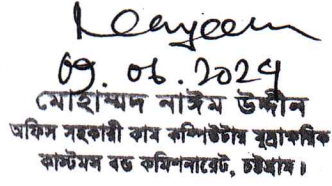 09.06.2024
মোহাম্মদ নাঈম উদ্দীন
অফিস সহকারী কাম কম্পিউটার মুদ্রাক্ষরিক
কাস্টমস বন্ড কমিশনারেট, চট্টগ্রাম।